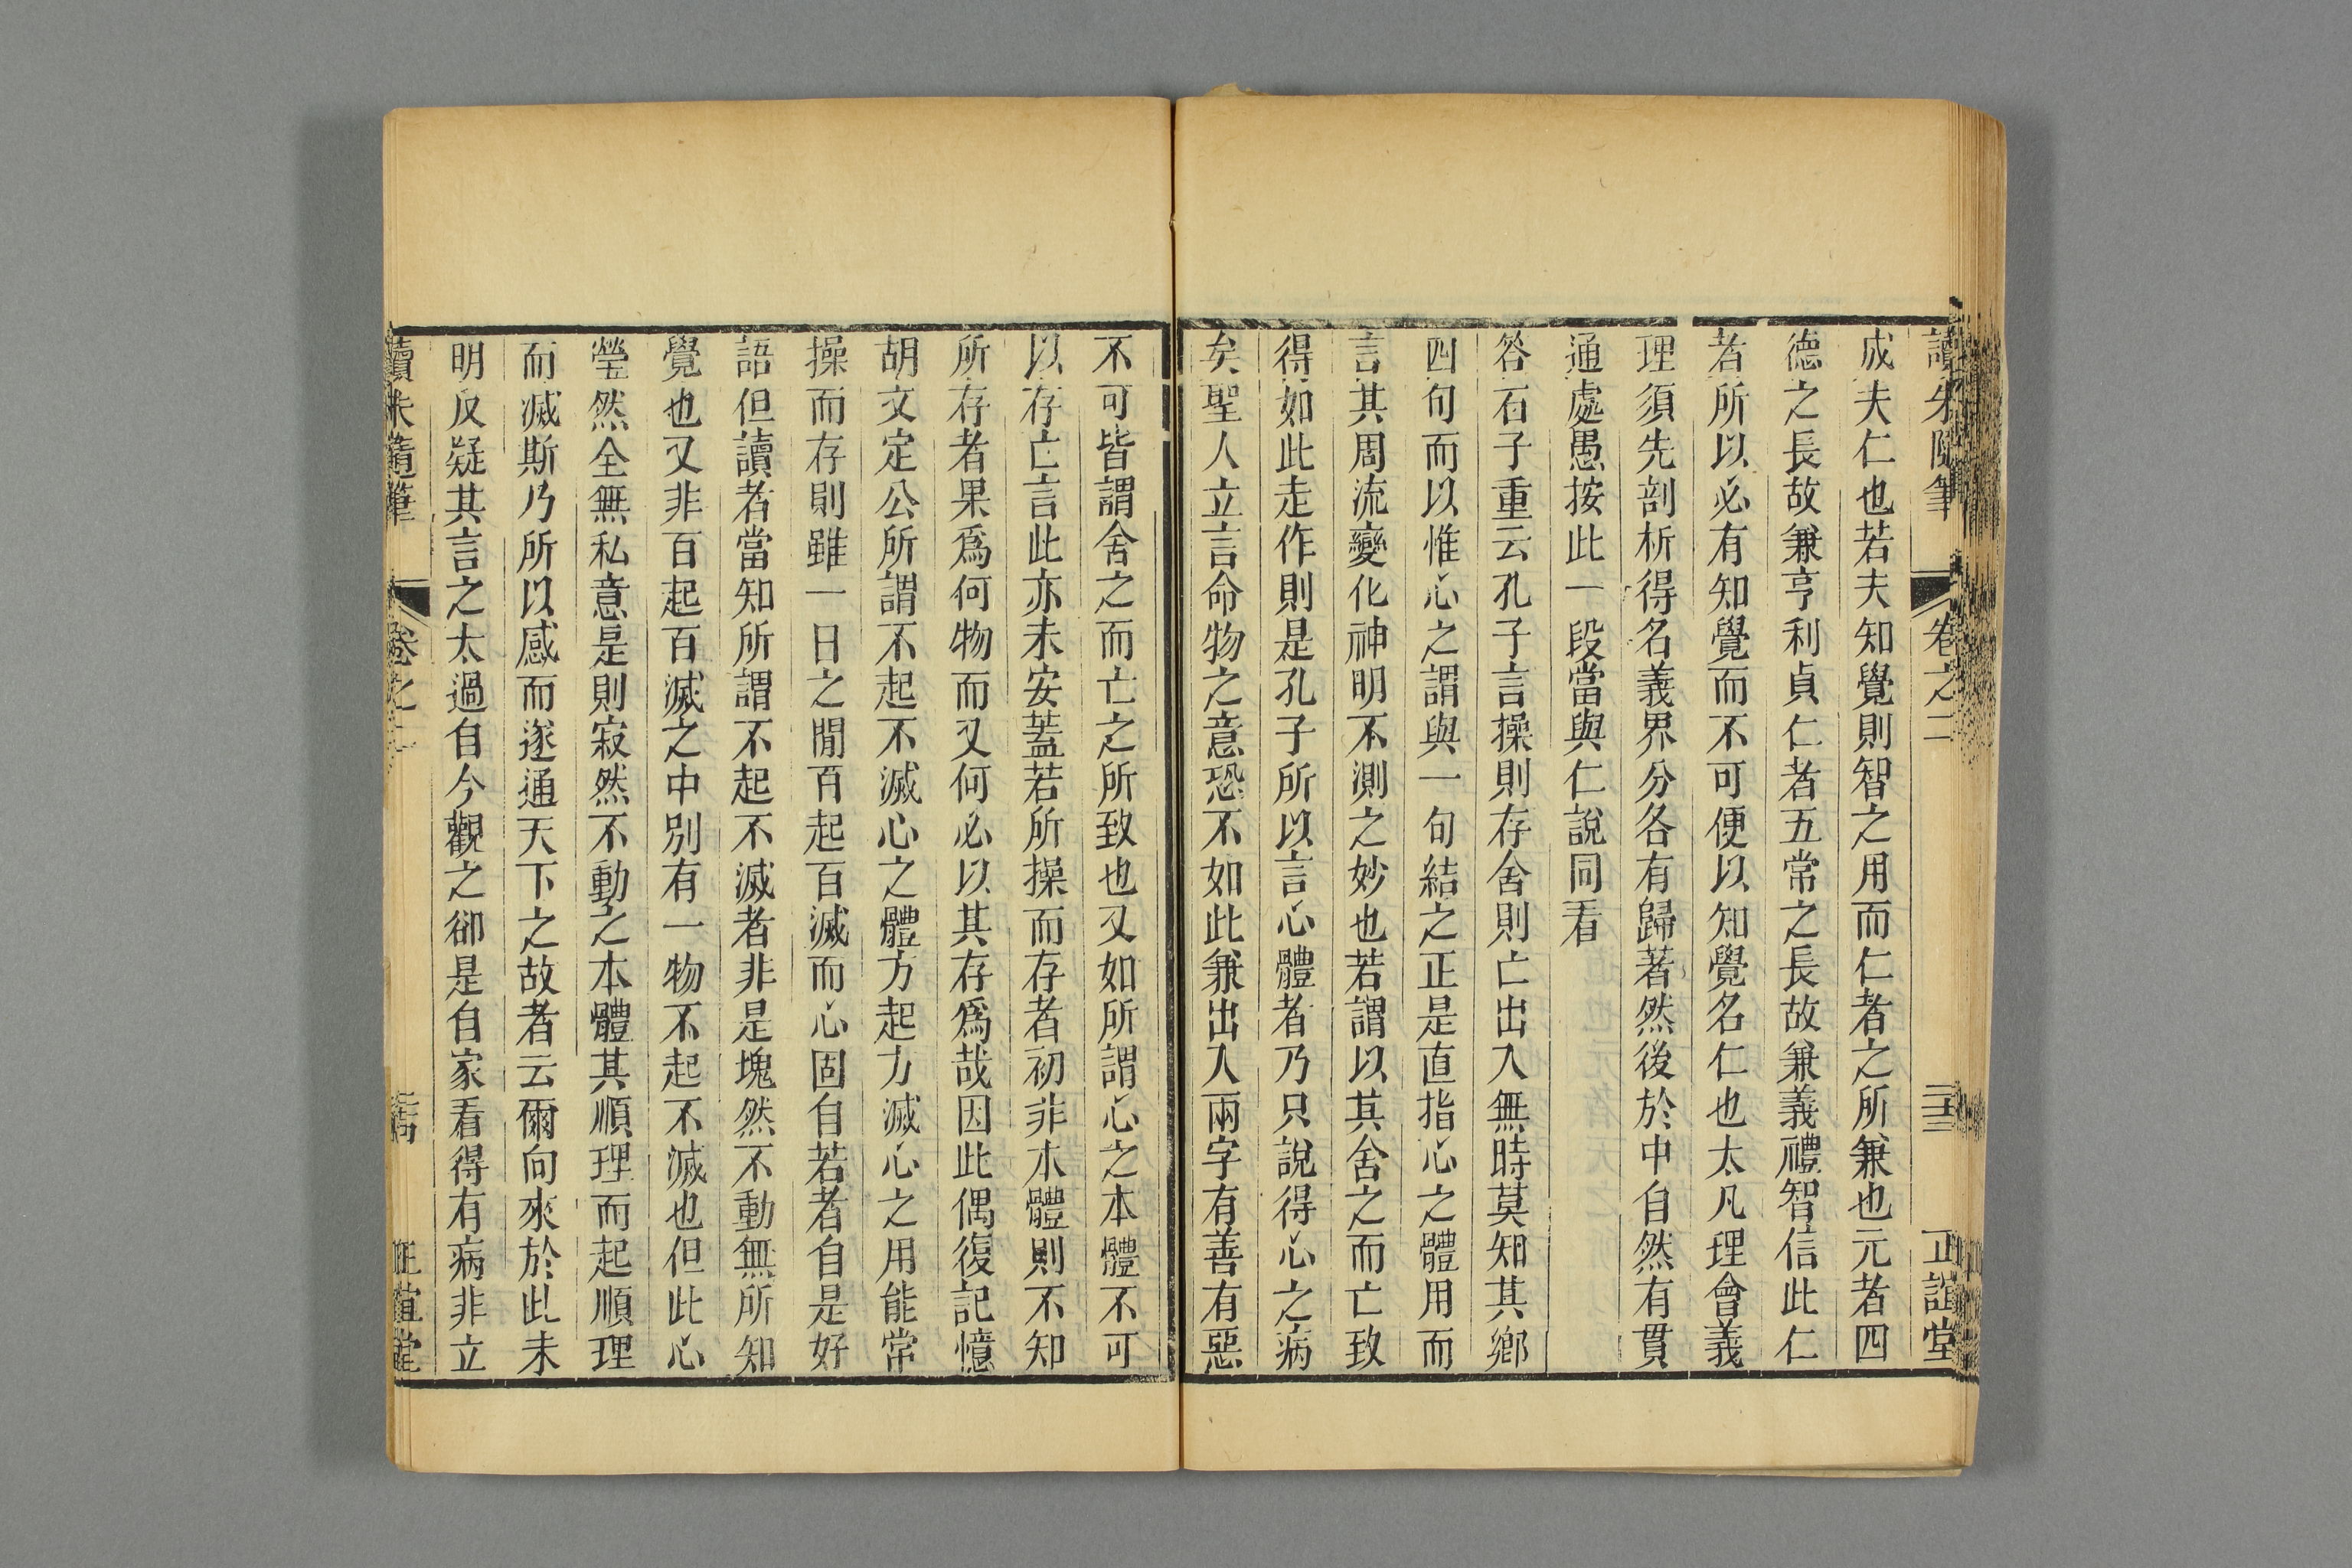 讀朱隨筆 卷之二 二十三 正誼堂
成夫仁也若夫知覺則智之用而仁者之所兼也元者四
德之長故兼亨利貞仁者五常之長故兼義禮智信此仁
者所以必有知覺而不可便以知覺名仁也太凡理會義
理須先剖析得名義界分各有歸著然後於中自然有貫
通處愚按此一段當與仁說同看
答石子重云孔子言操則存舍則亡出入無時莫知其鄉
四句而以惟心之謂與一句結之正是直指心之體用而
言其周流變化神明不測之妙也若謂以其舍之而亡致
得如此走作則是孔子所以言心體者乃只說得心之病
矣聖人立言命物之意恐不如此兼出入兩字有善有惡
不可皆謂舍之而亡之所致也又如所謂心之本體不可
以存亡言此亦未安蓋若所操而存者初非本體則不知
所存者果爲何物而又何必以其存爲哉因此偶復記憶
胡文定公所謂不起不滅心之體方起方滅心之用能常
操而存則雖一日之閒百起百滅而心固自若者自是好
語但讀者當知所謂不起不滅者非是塊然不動無所知
覺也又非百起百滅之中別有一物不起不滅也但此心
瑩然全無私意是則寂然不動之本體其順理而起順理
而滅斯乃所以感而遂通天下之故者云爾向來於此未
明反疑其言之太過自今觀之卻是自家看得有病非立
讀朱隨筆 卷之二 正誼堂